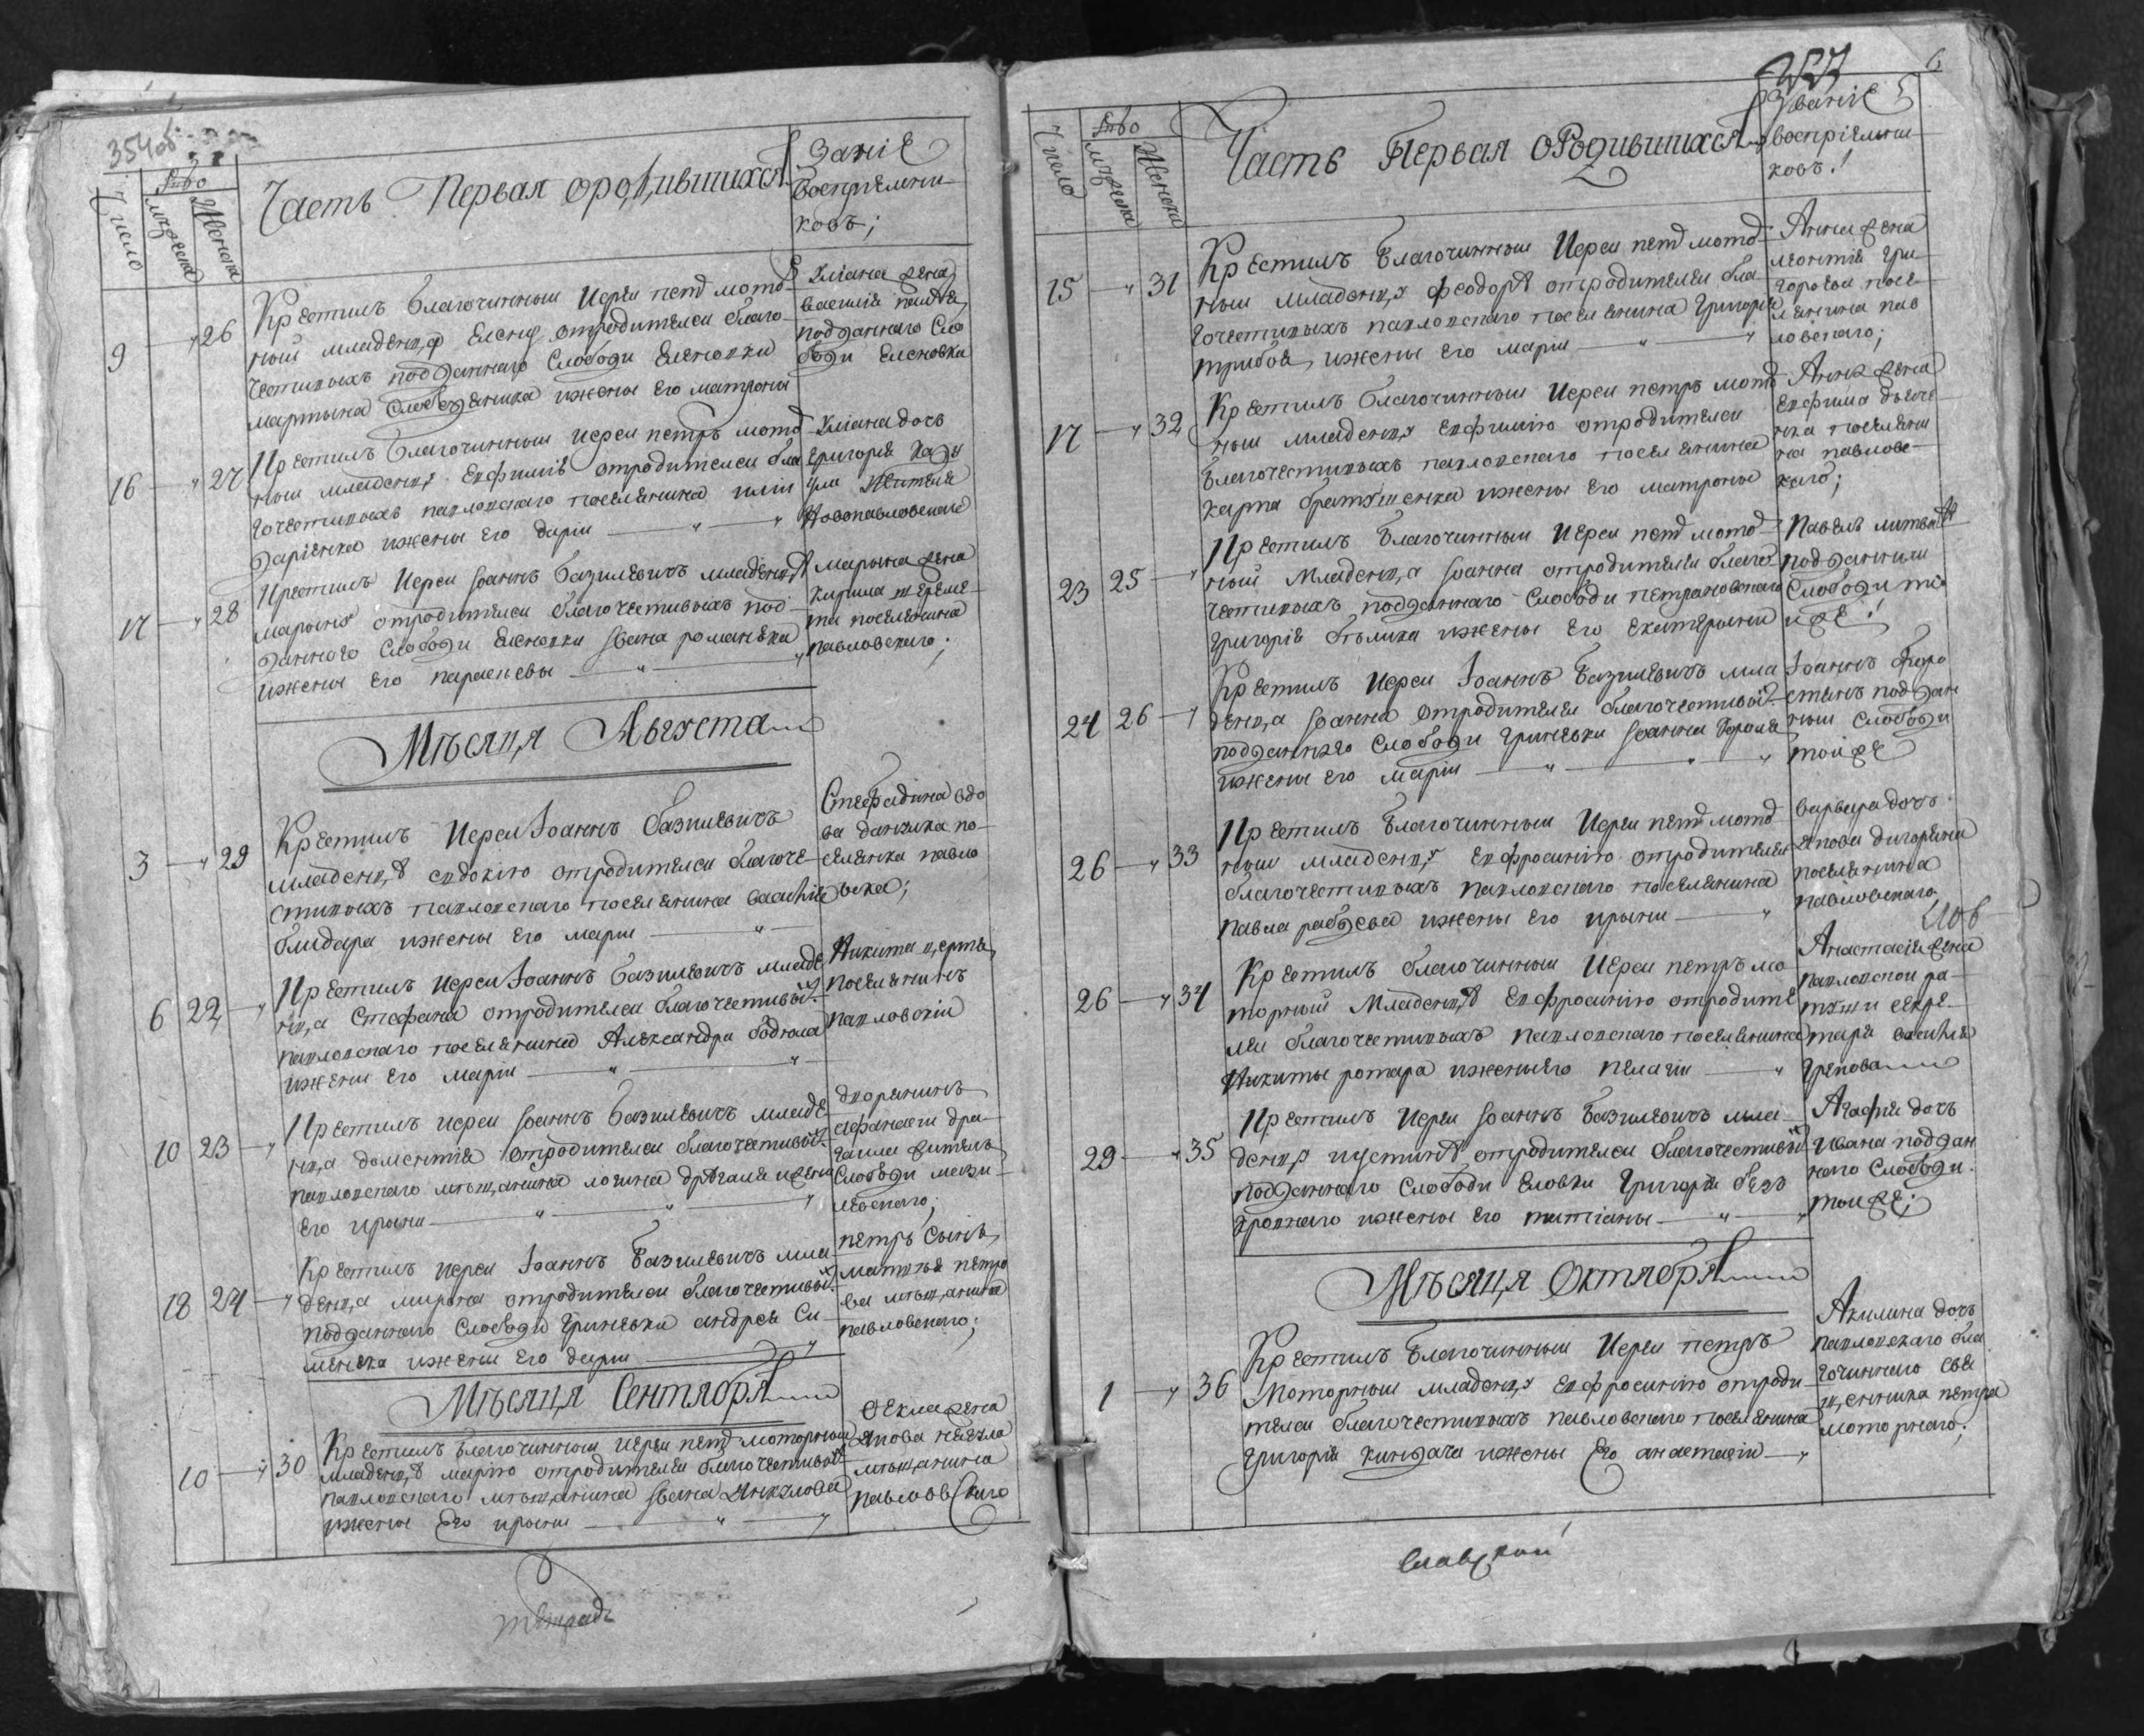 354об
Число
мужеска
Женска
Часть Первая ородившихся
Званіе
воспріемни-
ковъ;
9 — „ 26
Крестилъ Благочинныи Иереи петръ мотор-
ныи младенца Елену отродителеи благо-
честивыхъ подданнаго Слободи Еленовки
мартына Слободяника ижены его матроны
Уліана жена
василія
подданнаго Сло
боди Еленовки
16 — „ 27
Крестилъ Благочинныи иереи петръ мотор
ныи младенца Евфимію отродителеи бла
гочестивыхъ павловскаго поселянина иліи
Даріенка ижены его дарии — „ — „
Уліана дочь
григорія
жителя
Новопавловскаго
17 — „ 28
Крестилъ Иереи Іоаннъ Базилевичъ младенца
марыну отродителеи благочестивыхъ под-
даннаго Слободи Еленовки Івана романенка
ижены его параскевы — „ — „
марына жена
кирила
поселянина
павловскаго;
Мѣсяца Августа
3 — „ 29
Крестилъ Иереи Іоаннъ Базилевичъ
младенца евдокію отродителеи благоче-
стивыхъ павловскаго поселянина василія
блидара ижены его марии — „ —
Стефанида вдо
ва по-
селянка павло
вска;
6 22 — „
Крестилъ Иереи Іоаннъ Базилевичъ младе
нца Стефана отродителеи благочестивых
павловскаго поселянина Александра бодюла
ижены его марии — „ — „
Никита
поселянинъ
павловскіи
10 23 — „
Крестилъ иереи Іоаннъ Базилевичъ младе
нца доментія отродителеи благочестивых
павловскаго мѣщанина логина драгаля ижены
его ирыны — „ — „ — „
дворянинъ
афанасіи дра-
гаиш житель
Слободи
18 24 — „
Крестилъ иереи Іоаннъ Базилевичъ мла
денца мирона отродителеи благочестивых
подданнаго Слободи Гриневки андрея Си
меняка ижены его дарии — „
петръ Сынъ
матвѣя петро
ва мѣщанина
павловскаго;
Мѣсяца Сентября
10 — „ 30
Крестилъ Благочинныи иереи петръ моторныи
младенца марію отродителеи благочестивых
павловскаго мѣщанина Івана Янкулова
ижены Его ирыны — „ — „
Өекла жена
Якова
мѣщанина
павловскаго
тетрадь
257
6
Число
мужеска
Женска
Часть Первая ородившихся
Званіе
воспріемни-
ковъ!
15 — „ 31
Крестилъ Благочинныи Иереи петръ мотор-
ныи младенца феодору отродителеи бла
гочестивыхъ павловскаго поселянина Григорія
трибоя ижены его марии — „ — „
Анна жена
леонтія Гри-
горова посе-
лянина пав
ловскаго;
17 — „ 32
Крестилъ Благочинныи Иереи петръ мотор
ныи младенца Евфимію отродителеи
Благочестивыхъ павловскаго поселянина
карпа братушенка ижены его матроны
Анна жена
Евфима дьяче-
нка поселяни
на павловс-
каго;
23 25 — „
Крестилъ Благочинныи Иереи петръ мотор-
ныи Младенца Іоанна отродителеи благо
честивыхъ подданнаго Слободи петрановскаго
григорія бѣлика ижены его Екатерыни
Павелъ
подданныи
Слободи то
иже!
24 26 — „
Крестилъ Иереи Іоаннъ Базилевичъ мла
денца Іоанна отродителеи благочестивых
подданнаго Слободи гриневки Іоанна Короля
ижены его марии — „ — „ — „
Іоаннъ Коро
стынъ поддан
ныи Слободи
тоиже
26 — „ 33
Крестилъ Благочинныи Иереи петръ мотор
ныи младенца Евфросинію отродителеи
благочестивыхъ павловскаго поселянина
павла рабджея ижены его ирыни — „
варвара дочь
якова дигорина
поселянина
павловскаго
26 — „ 34
Крестилъ благочинныи Иереи петръ мо
торныи Младенца Евфросинію отродите
леи благочестивыхъ павловскаго поселянина
Никиты ротара ижены его пелагіи — „
Анастасія жена
павловскои ра-
туши секре-
таря василія
Грекова
29 — „ 35
Крестилъ Иереи Іоаннъ Базилевичъ мла-
денца иустину отродителеи благочестивых
подданнаго Слободи Еловки григорія безъ
кровнаго ижены его татіаны — „ — „
Агафія дочь
Ивана поддан
наго Слободи
тоиже;
Мѣсяца Октября
1 — „ 36
Крестилъ Благочинныи Иереи петръ
Моторныи младенца Евфросинію отроди-
телеи благочестивыхъ павловскаго поселянина
григорія киндзача ижены его анастасіи — „
Акилина дочь
павловскаго бла
гочиннаго свя
щенника петра
моторнаго;
Славской